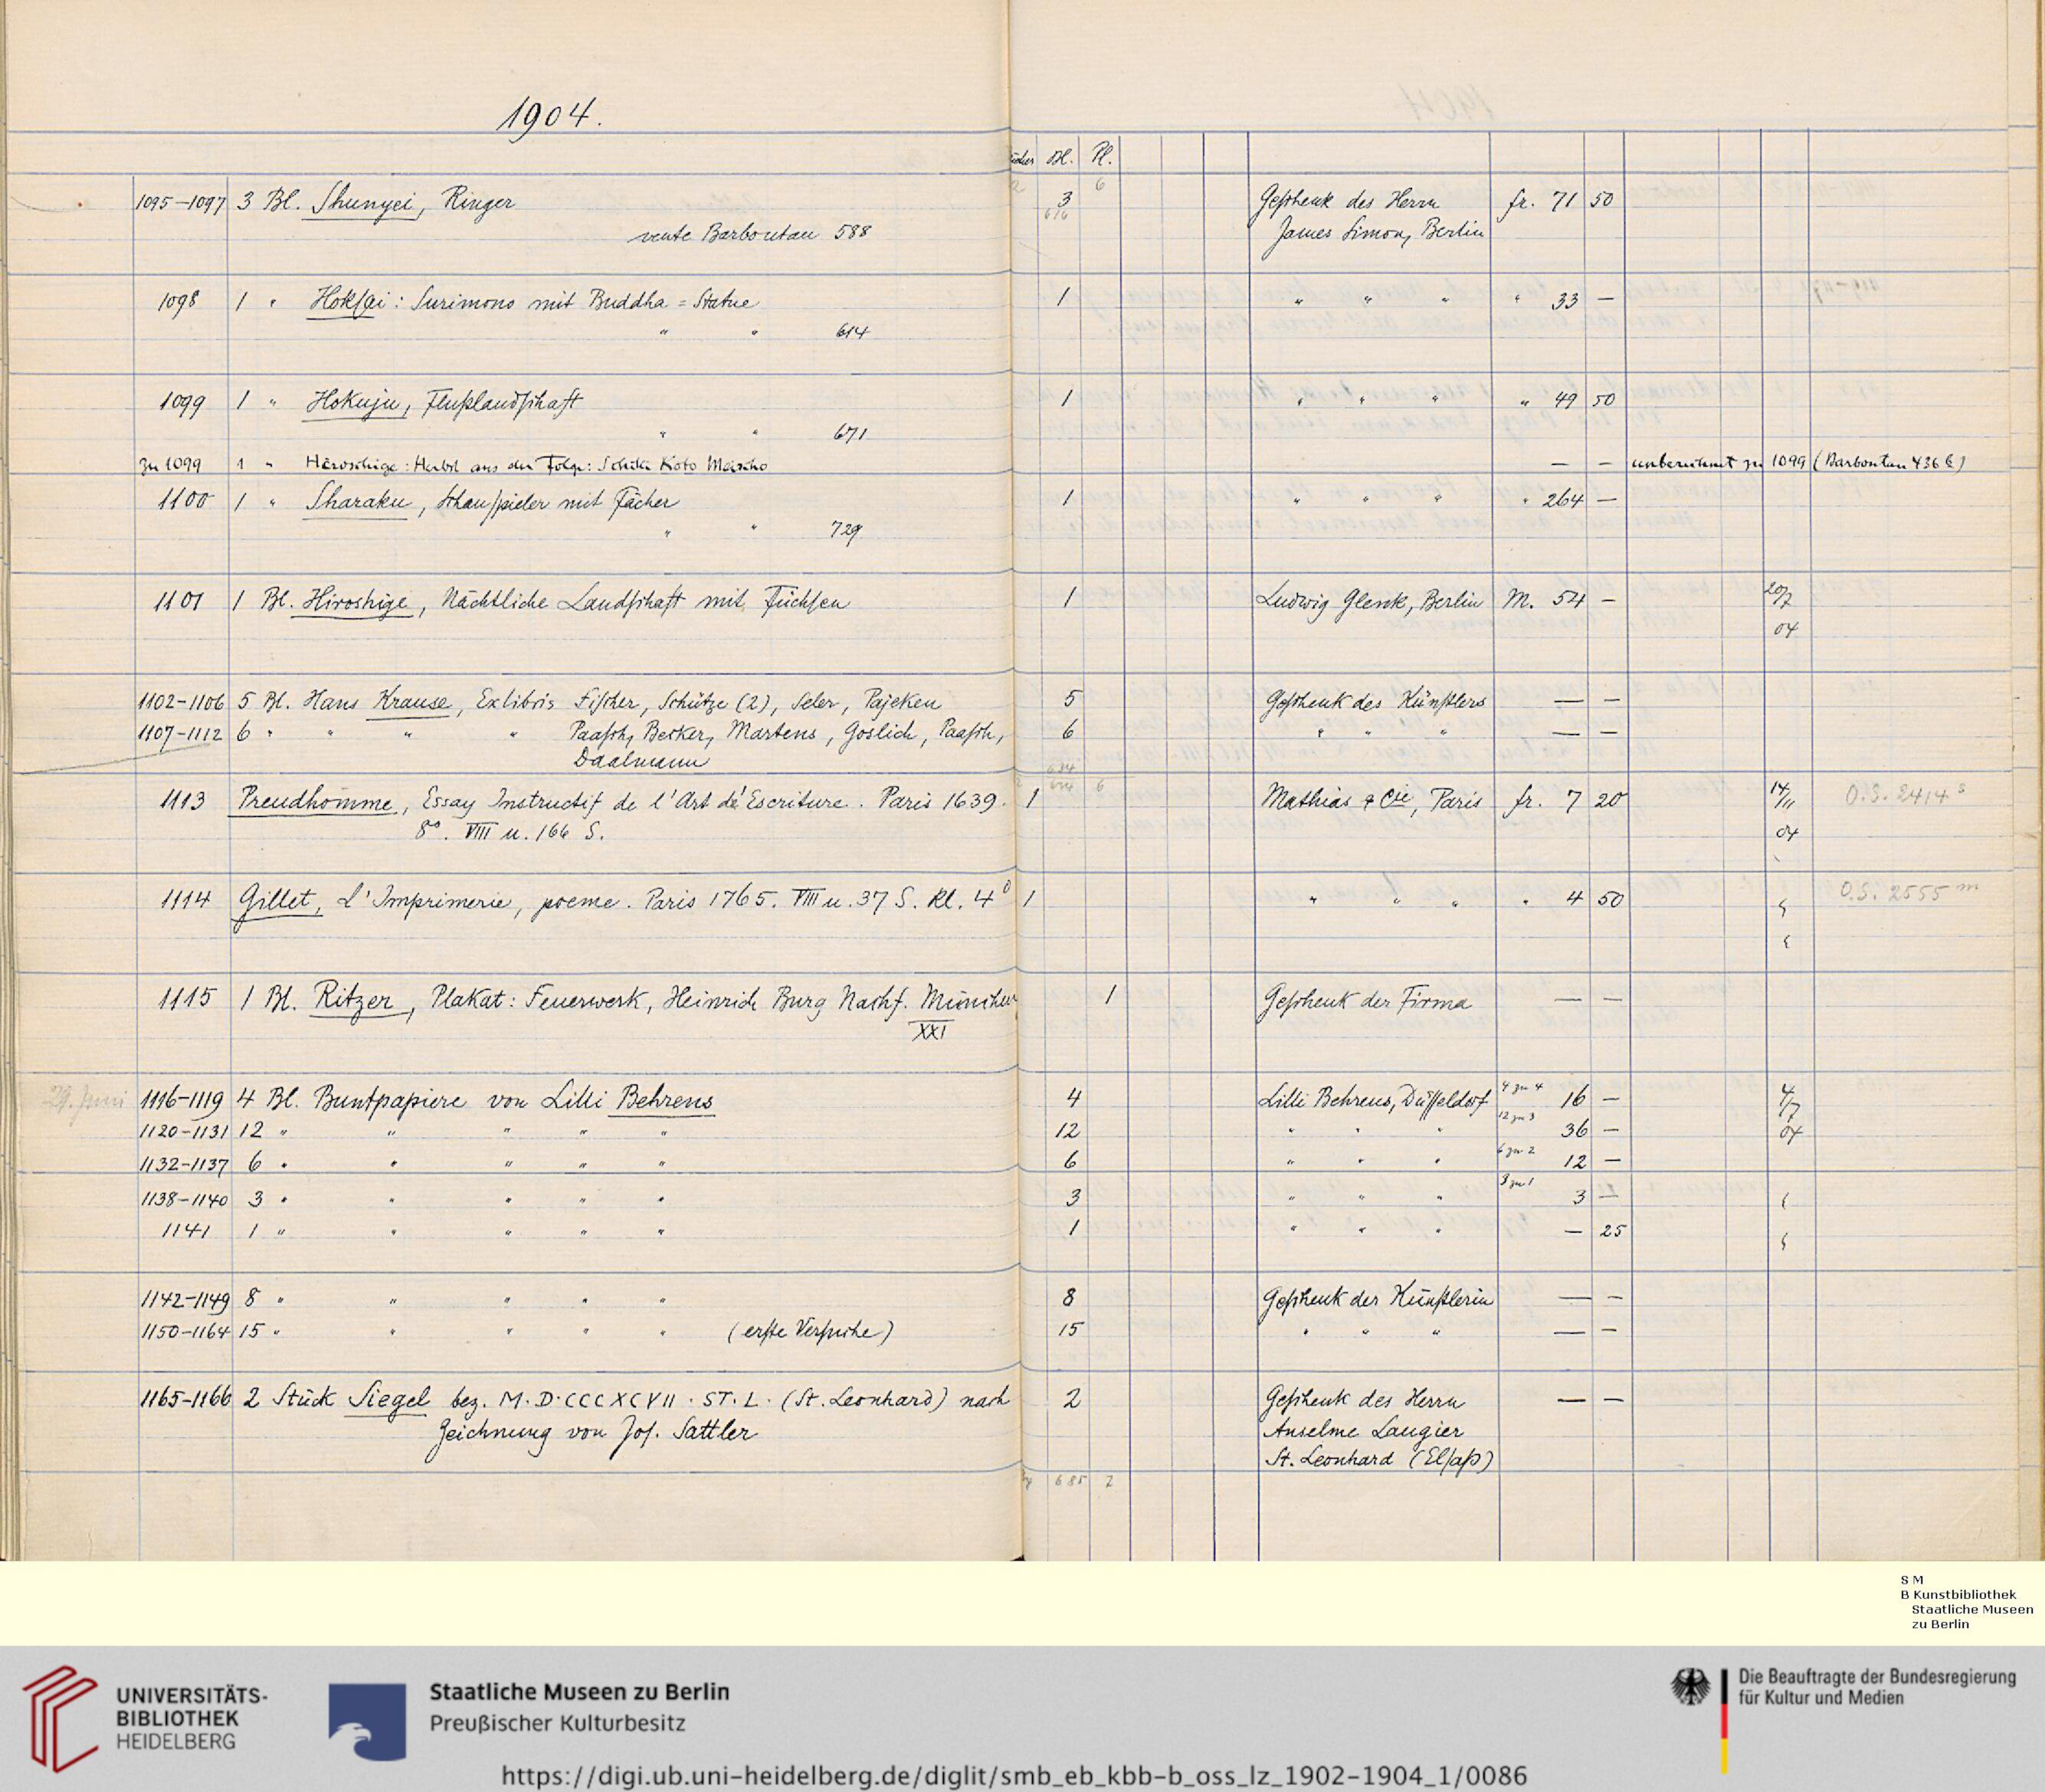 1904.
Bl. Pl.
1095-1097 3 Bl. Shunyei, Ringer 3 6 Geschenk des Herrn fr. 71 50
616
vente Barboutau 588 James Simon, Berlin
1098 1 " Hoksai: Surimono mit Buddha=Statue 1 " " " " 33 —
" " 614
1099 1 " Hokuju, Flußlandschaft 1 " " " " 49 50
" " 671
zu 1099 1 " Hiroschige: Herbst aus der Folge: Schiki Koto Meisho — — unberechnet zu 1099 (Barboutau 436 b)
1100 1 " Sharaku, Schauspieler mit Fächer 1 " " " " 264 —
" " 729
1101 1 Bl. Hiroshige, Nächtliche Landschaft mit Füchsen 1 Ludwig Glenk, Berlin M. 54 — 20/7
04
1102-1106 5 Bl. Hans Krause, Exlibris Fischer, Schütze (2), Seler, Pajeken 5 Geschenk des Künstlers — —
1107-1112 6 " " " " Paasch, Becker, Martens, Goslich, Paasch, 6 " " " — —
Daalmann
1113 Preudhomme, Essay Instructif de l'Art de Escriture. Paris 1639. 1 6 Mathias & Cie, Paris fr. 7 20 14/11 O.S. 2414 s
8°. VIII u. 166 S. 04
1114 Gillet, L'Imprimerie, poeme. Paris 1765. VIII u. 37 S. Kl. 4° 1 " " " " 4 50 O.S. 2555 m
1115 1 Bl. Ritzer, Plakat: Feuerwerk, Heinrich Burg Nachf. München 1 Geschenk der Firma — —
XXI
29. Juni 1116-1119 4 Bl. Buntpapiere von Lilli Behrens 4 Lilli Behrens, Düsseldorf 4 zu 4 16 — 4/7
1120-1131 12 " " " " " 12 " " " 12 zu 3 36 — 04
1132-1137 6 " " " " " 6 " " " 6 zu 2 12 —
1138-1140 3 " " " " " 3 " " " 3 zu 1 3 —
1141 1 " " " " " 1 " " " — 25
1142-1149 8 " " " " " 8 Geschenk der Künstlerin — —
1150-1164 15 " " " " " (erste Versuche) 15 " " " — —
1165-1166 2 Stück Siegel bez. M·D·CCCXCVII · ST·L· (St. Leonhard) nach 2 Geschenk des Herrn — —
Zeichnung von Jos. Sattler Anselme Laugier
St. Leonhard (Elsaß)
685 2
S M
B Kunstbibliothek
Staatliche Museen
zu Berlin
UNIVERSITÄTS-
BIBLIOTHEK
HEIDELBERG
Staatliche Museen zu Berlin
Preußischer Kulturbesitz
Die Beauftragte der Bundesregierung
für Kultur und Medien
https://digi.ub.uni-heidelberg.de/diglit/smb_eb_kbb-b_oss_lz_1902-1904_1/0086